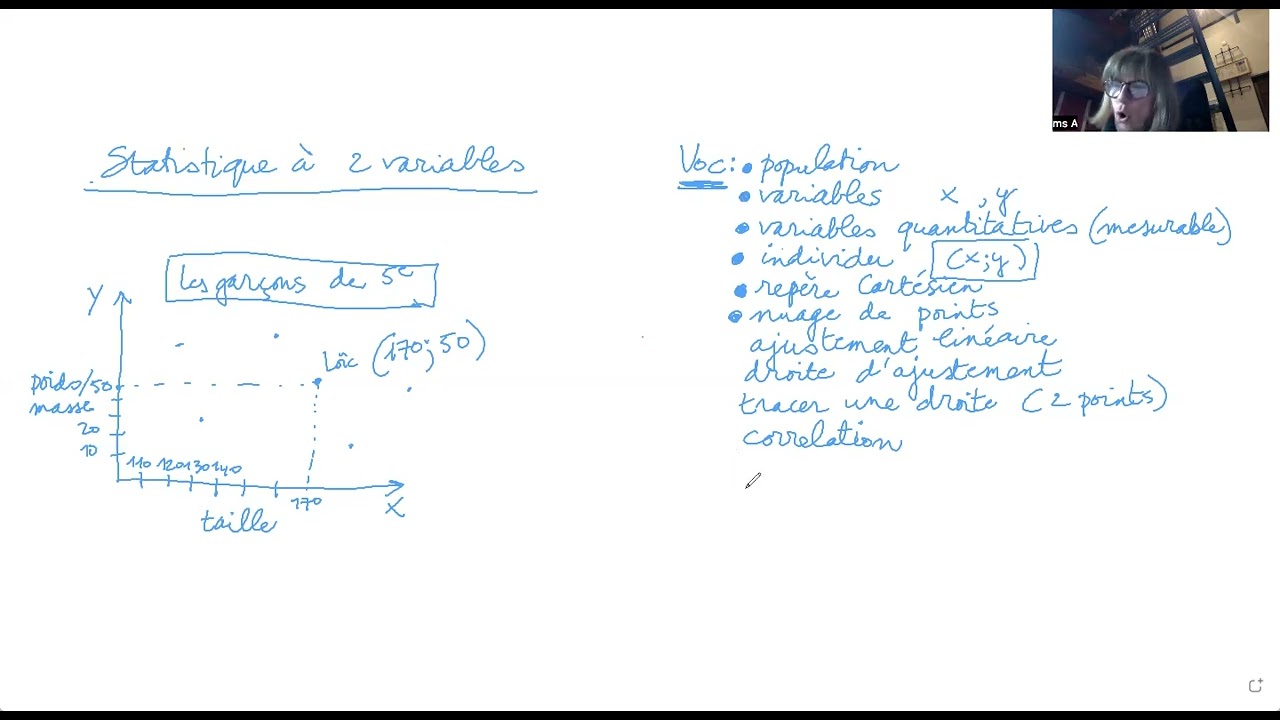 Statistique à 2 variables
les garçons de 5e
Y
Loïc (170;50)
poids/50
masse
20
10
110 120 130 140
170
X
taille
Voc: • population
• variables x, y
• variables quantitatives (mesurable)
• individu (x;y)
• repère Cartésien
• nuage de points
ajustement linéaire
droite d'ajustement
tracer une droite (2 points)
correlation
ms A